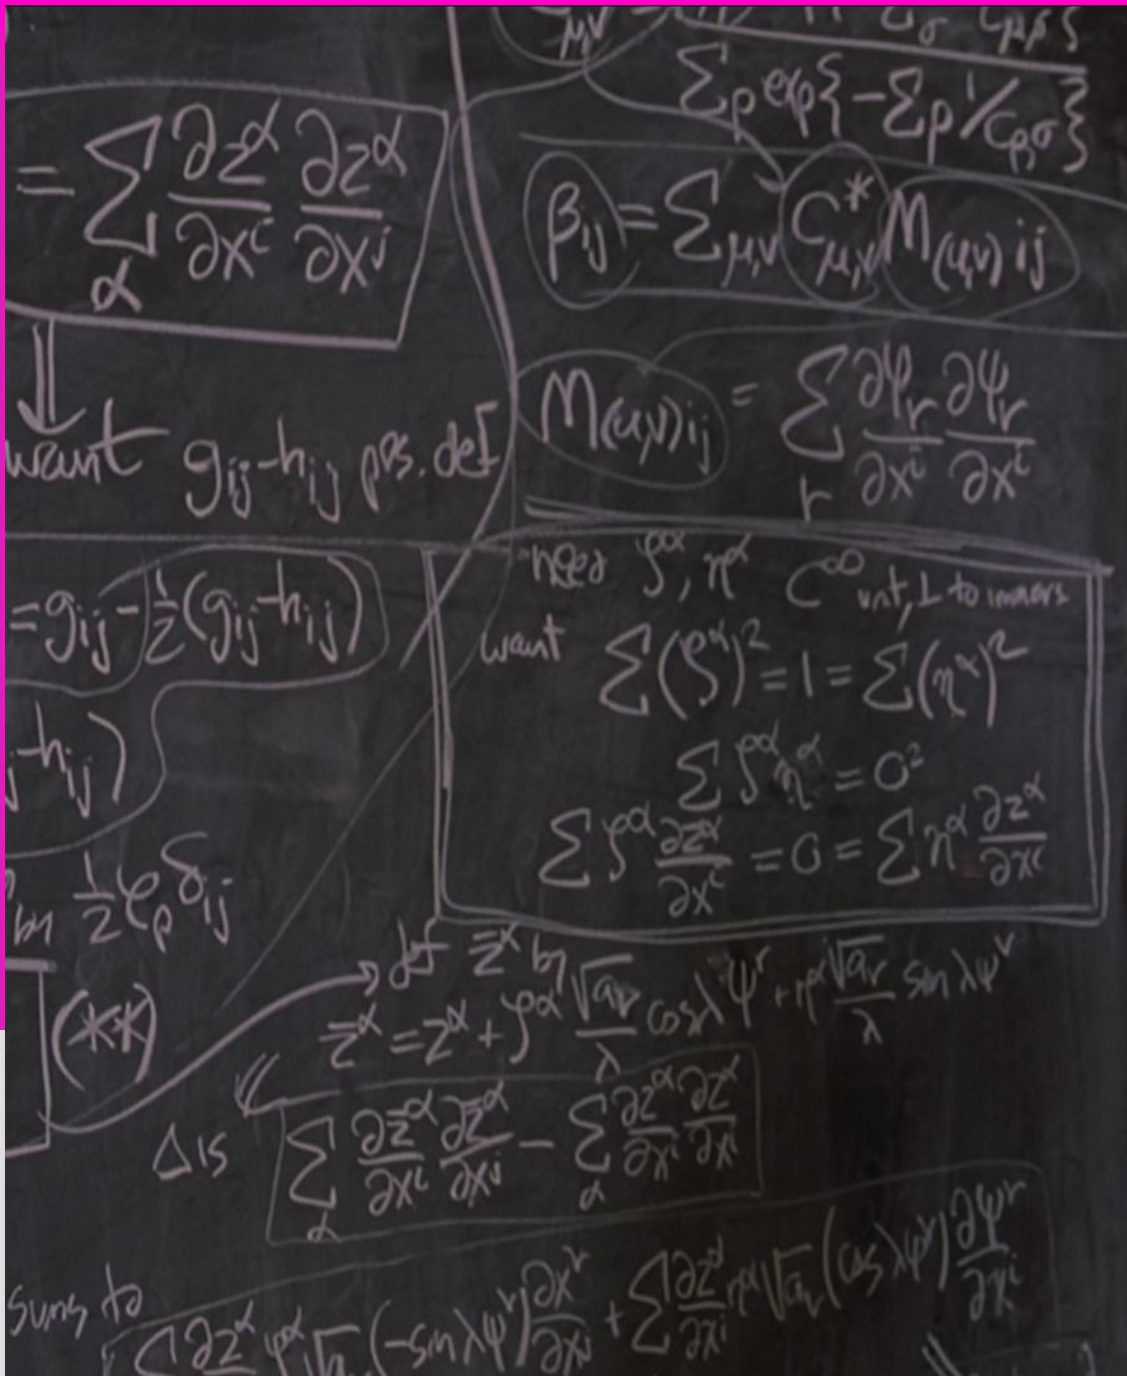 = Σ_α ∂z^α/∂x^i ∂z^α/∂x^j
want g_ij-h_ij pos. def
=g_ij-½(g_ij-h_ij)
-h_ij)
by ½ε_p δ_ij
(**)
Σ_ρ exp{-Σρ 1/C_ρ,σ}
β_ij = Σ_μ,ν C*_μ,ν M_(μ,ν) ij
M_(μ,ν) ij = Σ_r ∂ψ_r/∂x^i ∂ψ_r/∂x^i
need ζ^α, η^α C^∞ unt, ⊥ to immers
want Σ(ζ^α)²=1=Σ(η^α)²
Σ ζ^α η^α = 0
Σ ζ^α ∂z^α/∂x^i = 0 = Σ η^α ∂z^α/∂x^i
def z̄^α by
z̄^α = z^α + ζ^α √a_ν/λ cosλψ^r + η^α √a_ν/λ sin λψ^r
Δ is Σ_α ∂z̄^α/∂x^i ∂z̄^α/∂x^j - Σ_α ∂z^α/∂x^i ∂z^α/∂x^i
sums to
(-sin λψ^r) ∂x^r/∂x^j + Σ ∂z^α/∂x^i η^α √a_ν (cos λψ^r) ∂ψ^r/∂x^i